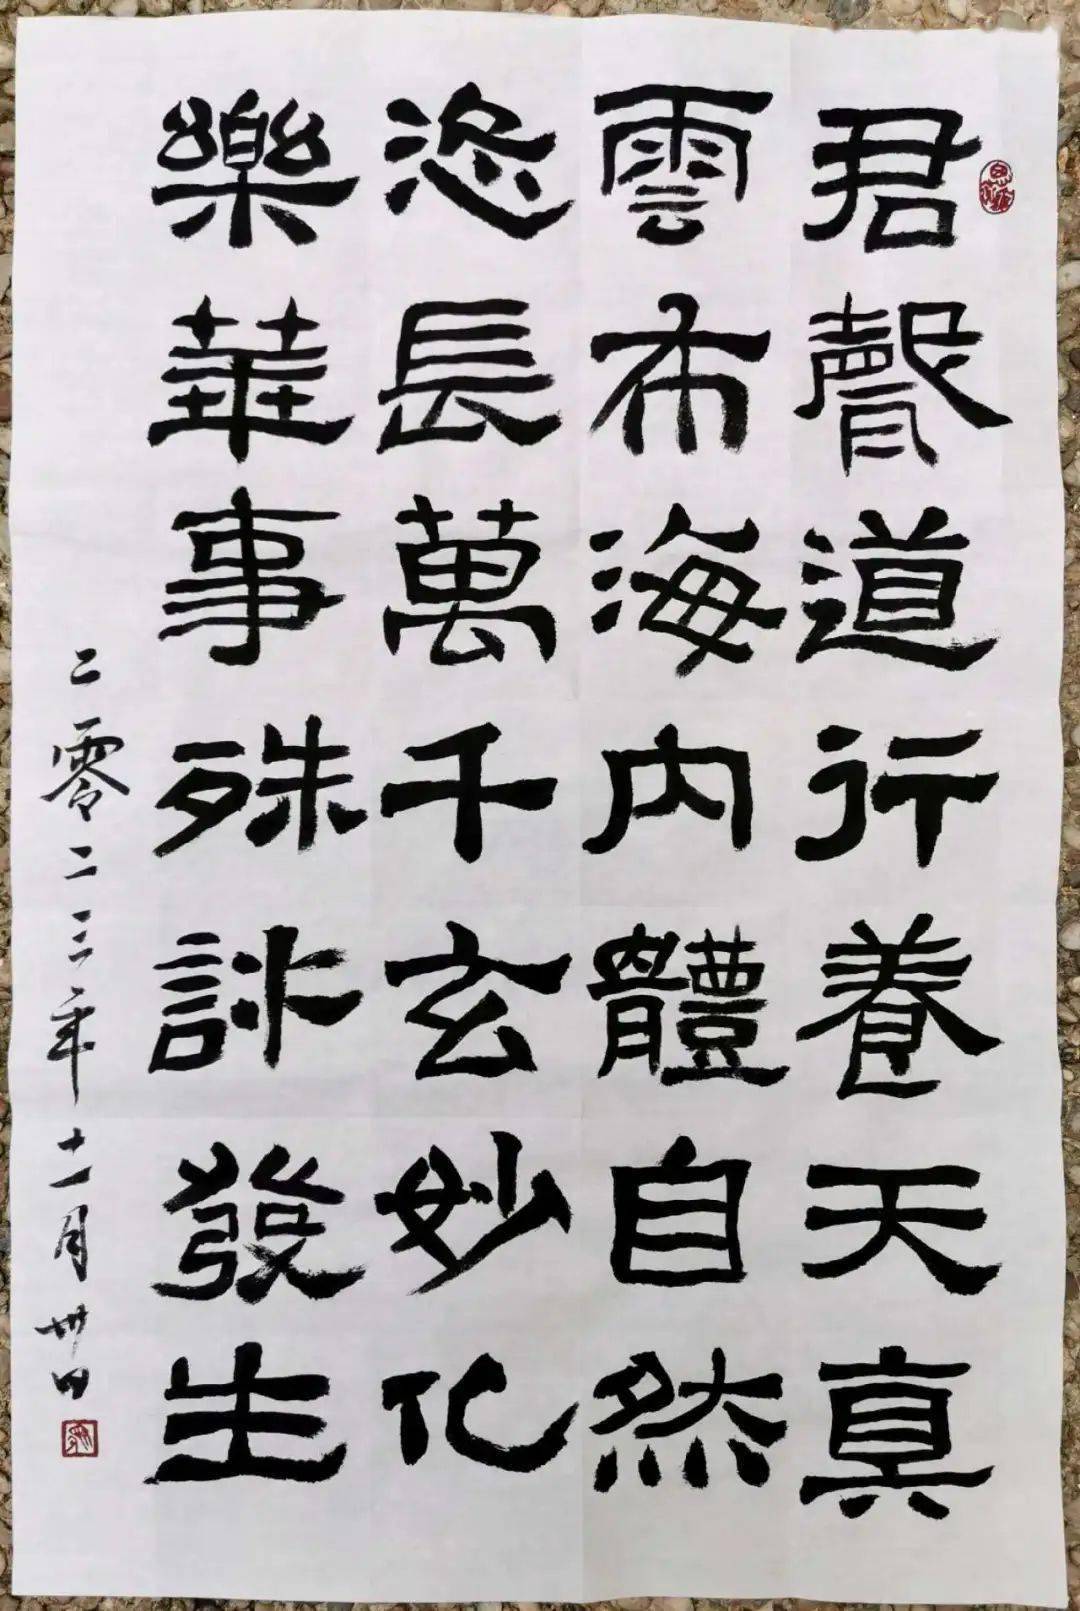 君聲道行養天真
雲布海內體自然
恣長萬千玄妙化
樂華事殊詠發生
二零二三年十一月卅日